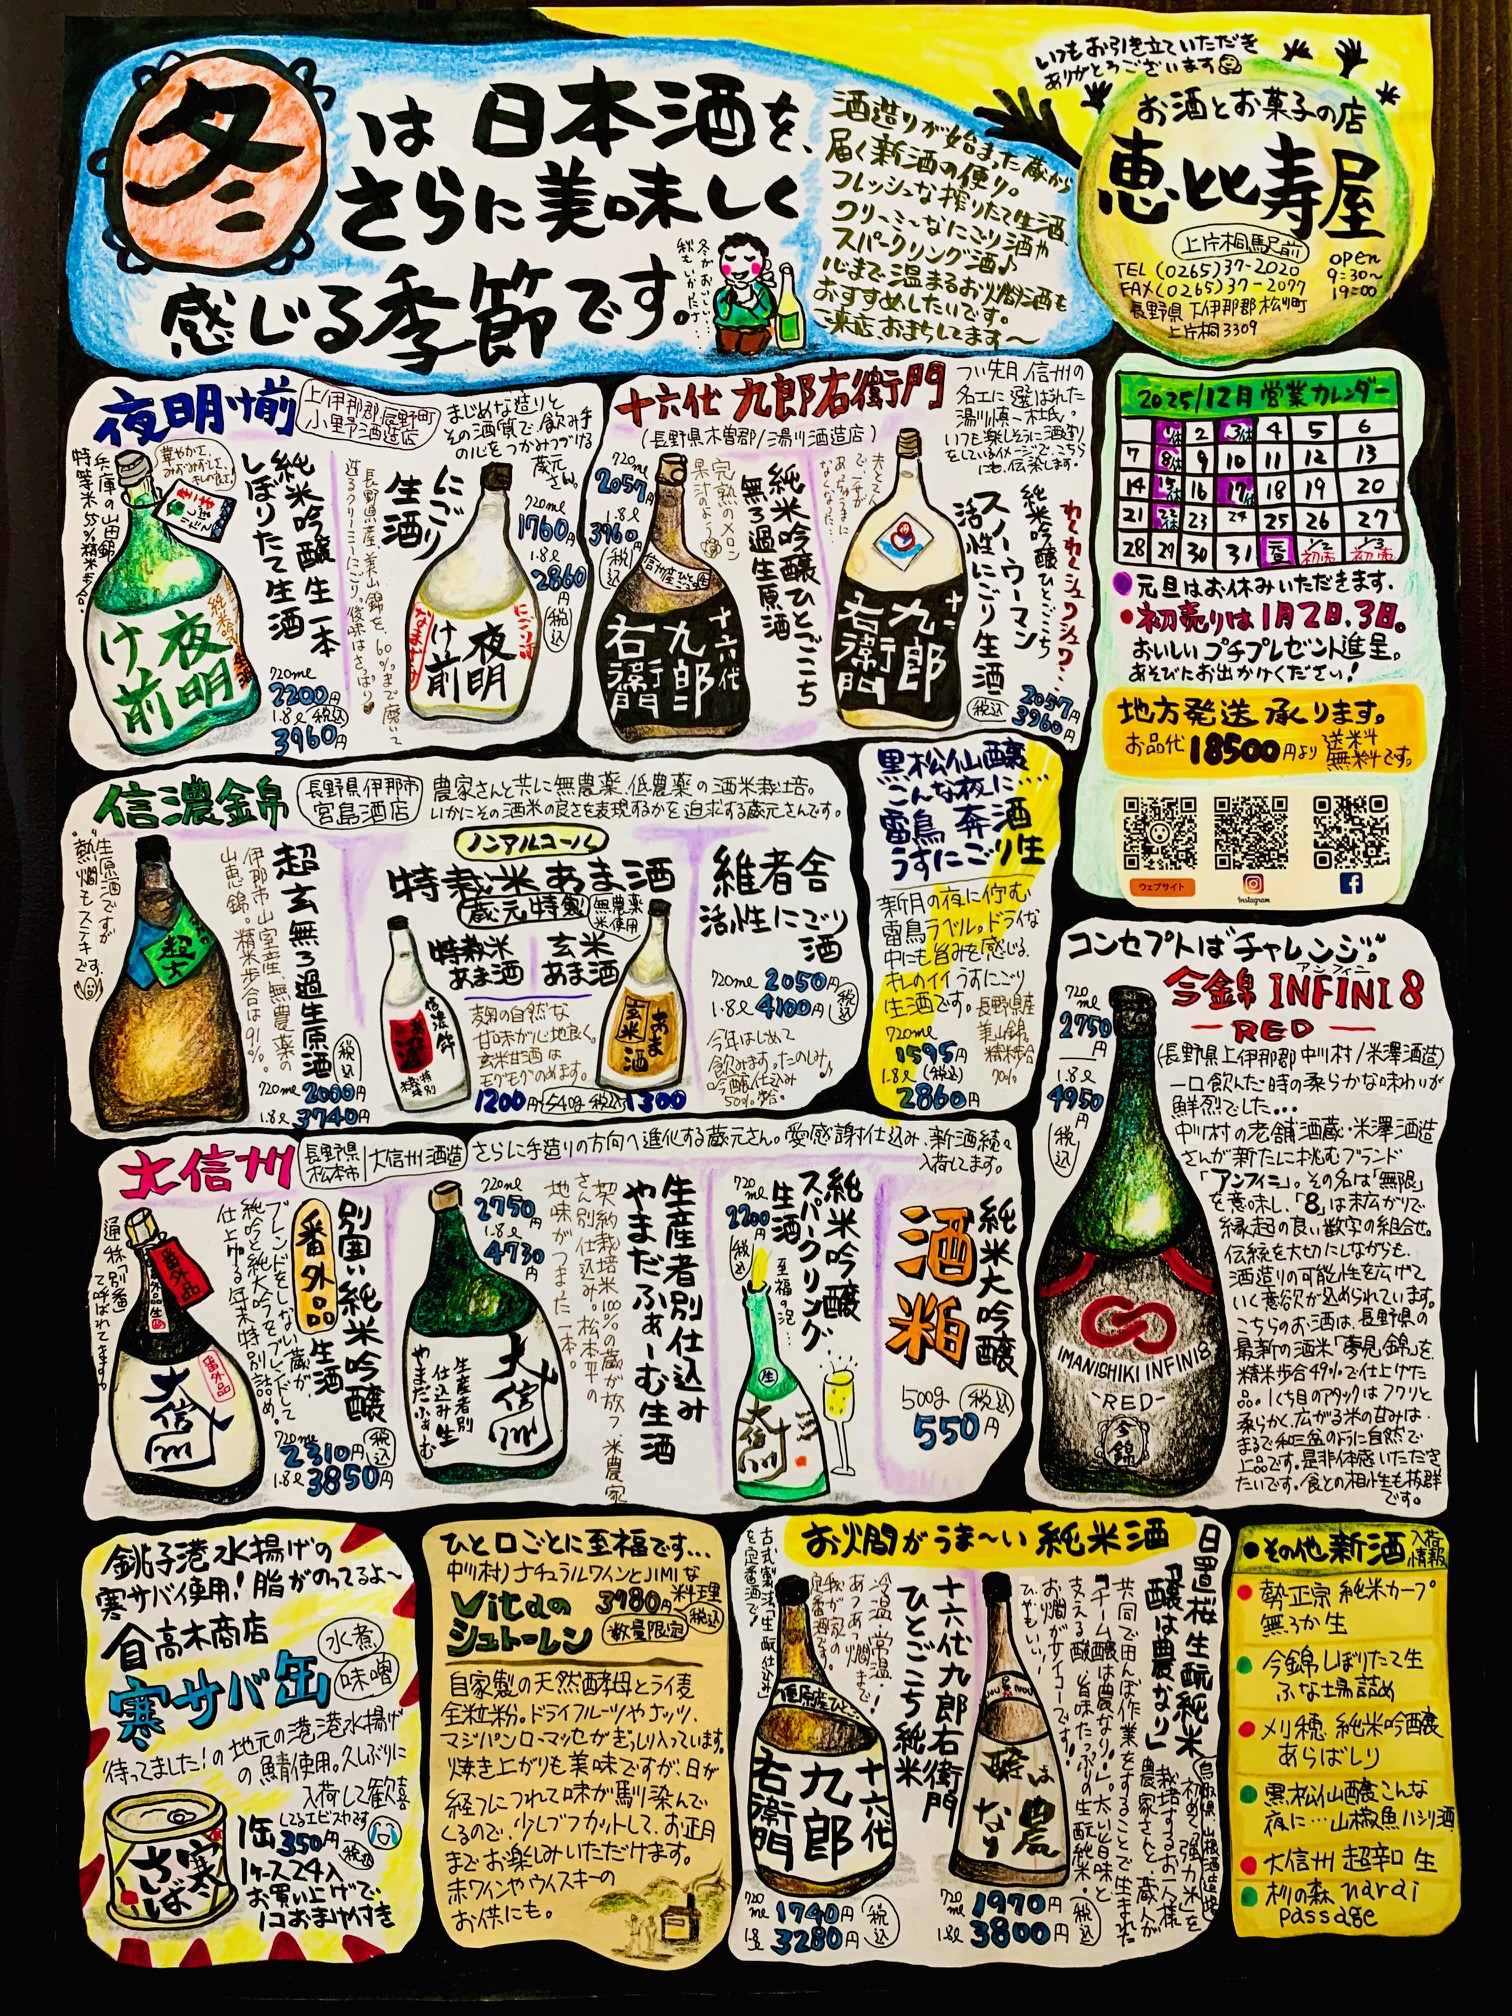 冬は日本酒を、
さらに美味しく
感じる季節です。
冬がおいしい…
酒造りが始まった蔵から
届く新酒の便り。
フレッシュな搾りたて生酒、
クリーミーなにごり酒や
スパークリング酒♪
心まで温まるお燗酒も
おすすめしたいです。
ご来店、おまちしてます〜
いつもお引き立ていただき
ありがとうございます
お酒とお菓子の店
恵比寿屋
上片桐駅前
TEL (0265)37-2020
FAX (0265)37-2077
長野県下伊那郡松川町
上片桐3309
open
9:30〜
19:00
夜明け前
上伊那郡辰野町
小野酒造店
まじめな造りと
その酒質で、飲み手
の心をつかみつづける
蔵元さん。
純米吟醸生一本
しぼりたて生酒
兵庫の山田錦
特等米55%精米歩合。
夜明け前
純米吟醸
生酒
720ml
2200円
1.8ℓ (税込)
3960円
にごり
生酒
長野県産、美山錦を、60%まで磨いて
造るクリーミーにごり。後味はさっぱり
720ml
1760円
1.8ℓ
2860円
(税込)
にごり酒
夜明け前
なまざけ
十六代 九郎右衛門
(長野県木曽郡/湯川酒造店)
つい先月、信州の
名工に選ばれた
湯川慎一杜氏。
いつも楽しそうに酒造り
をしているイメージで、こちら
にも、伝染します。
720ml
2057円
1.8ℓ
3960円
(税込)
純米吟醸ひとごこち
無ろ過生原酒
完熟のメロン
果汁のよう
十六代
九郎
右衛門
わくわくシュワシュワ…
純米吟醸ひとごこち
スノーウーマン
活性にごり生酒
(税込)
2057円
3960円
十六
九郎
右衛門
2025/12月 営業カレンダー
1休 2 3休 4 5 6
7 8休 9 10 11 12 13
14 15休 16 17休 18 19 20
21 22休 23 24 25 26 27
28 29 30 31 元旦 1/2初売 1/3初売
元旦はお休みいただきます。
初売りは1月2日、3日。
おいしいプチプレゼント進呈。
あそびにお出かけください!
地方発送承ります。
お品代18500円より送料無料です。
ウェブサイト
Instagram
Facebook
信濃錦
長野県伊那市
宮島酒店
農家さんと共に無農薬、低農薬の酒米栽培。
いかにその酒米の良さを表現するかを追求する蔵元さんです。
超玄無ろ過生原酒
伊那市山室産、無農薬の
山恵錦。精米歩合は91%。
生原酒ですが
"熱燗"もステキです。
(税込)
720ml 2000円
1.8ℓ 3740円
ノンアルコール
特栽米あま酒
蔵元特製
無農薬
米使用
特栽米
あま酒
玄米
あま酒
麹の自然な
甘味が心地良く。
玄米甘酒は
モグモグのめます。
1200円 (540g 税込) 1300
信濃錦
あま酒
特別栽培米
あま
玄米
酒
維者舎
活性にごり
酒
720ml 2050円
1.8ℓ 4100円
(税込)
今年はじめて
飲みます。たのしみ♪
吟醸仕込み
黒松仙醸
こんな夜に…
雷鳥 奔酒
うすにごり生
新月の夜に佇む
雷鳥ラベル。ドライな
中にも旨みを感じる、
キレのイイうすにごり
生酒です。
長野県産
美山錦。
精米歩合
70%
720ml
1595円
1.8ℓ (税込)
2860円
コンセプトは"チャレンジ"。
アンフィニ
今錦 INFINI 8
— RED —
(長野県上伊那郡中川村/米澤酒造)
720ml
2750円
1.8ℓ
4950円
(税込)
一口飲んだ時の柔らかな味わりが
鮮烈でした…
中川村の老舗酒蔵・米澤酒造
さんが新たに挑むブランド
「アンフィニ」。その名は「無限」
を意味し、「8」は末広がりで
縁起の良い数字の組合せ。
伝統を大切にしながらも、
酒造りの可能性を広げて
いく意欲が込められています。
こちらのお酒は、長野県の
最新の酒米「夢見錦」を、
精米歩合49%で仕上げた
品。1くち目のアタックはフワリと
柔らかく、広がる米の甘みは、
まるで和三盆のように自然で
上品です。是非体感いただき
たいです!食との相性も抜群
です。
IMANISHIKI INFINI8
-RED-
今錦
大信州
長野県
松本市
大信州酒造
さらに手造りの方向へ進化する蔵元さん。愛感謝仕込み、新酒続々
入荷してます。
別囲い純米吟醸
番外品
生酒
ブレンドをしない蔵が、
純吟と純大吟をブレンドして
仕上げる年末特別詰め。
通称「別番」
て呼ばれてますよ
大信州
番外品
720ml
2310円
1.8ℓ
3850円
(税込)
720ml
2750円
1.8ℓ
4730円
生産者別仕込み
やまだふぁーむ生酒
契約栽培米100%の蔵が放つ、米農家
さん別仕込み。松本平の
地味がつまった一本。
大信州
生産者別
仕込み生
やまだふぁーむ
純米吟醸
スパークリング
生酒
至福の泡…
720ml
2200円
(税込)
生
大信州
純米大吟醸
酒粕
500g (税込)
550円
銚子港水揚げの
寒サバ使用!脂がのってるよ〜
高木商店
寒サバ缶
水煮
味噌
待ってました!の地元の港港水揚げ
の鯖使用。久しぶりに
入荷して歓喜
してるエビスヤです
1缶350円(税込)
1ケース24入
お買い上げで、
1コおまけつき
寒さば
ひと口ごとに至福です…
中川村ナチュラルワインとJIMIな
料理
Vitaの
シュトーレン
3980円(税込)
数量限定
自家製の天然酵母とライ麦
全粒粉。ドライフルーツやナッツ、
マジパンローマッセがぎっしり入っています。
焼き上がりも美味ですが、日が
経つにつれて味が馴染んで
くるので、少しづつカットして、お正月
までお楽しみいただけます。
赤ワインやウイスキーの
お供にも。
お燗がうま〜い純米酒
古式製法「生酛仕込み」
を定番酒で!
冷温、常温、
あつあつ燗まで!
我が家の
定番酒です。
十六代九郎右衛門
ひとごこち純米
十六代
九郎
右衛門
720ml 1740円
1.8ℓ 3280円
(税込)
日置桜 生酛純米
「醸は農なり」
鳥取県/山根酒造場
初めて「強力米」を
栽培するお一人様
農家さんと、蔵人が
共同で田んぼ作業をすることで生まれた
「チーム醸は農なり」。太い旨味と
支える酸、旨味たっぷりの生酛純米。
お燗がサイコーです!
ひやもいい!
醸は農なり
720ml 1970円
1.8ℓ 3800円
(税込)
その他新酒
入荷情報
勢正宗 純米カープ
無ろか生
今錦しぼりたて生
ふな場詰め
メリ穂 純米吟醸
あらばしり
黒松仙醸こんな
夜に…山椒魚ハシリ酒
大信州 超辛口 生
杉の森 narai
passage